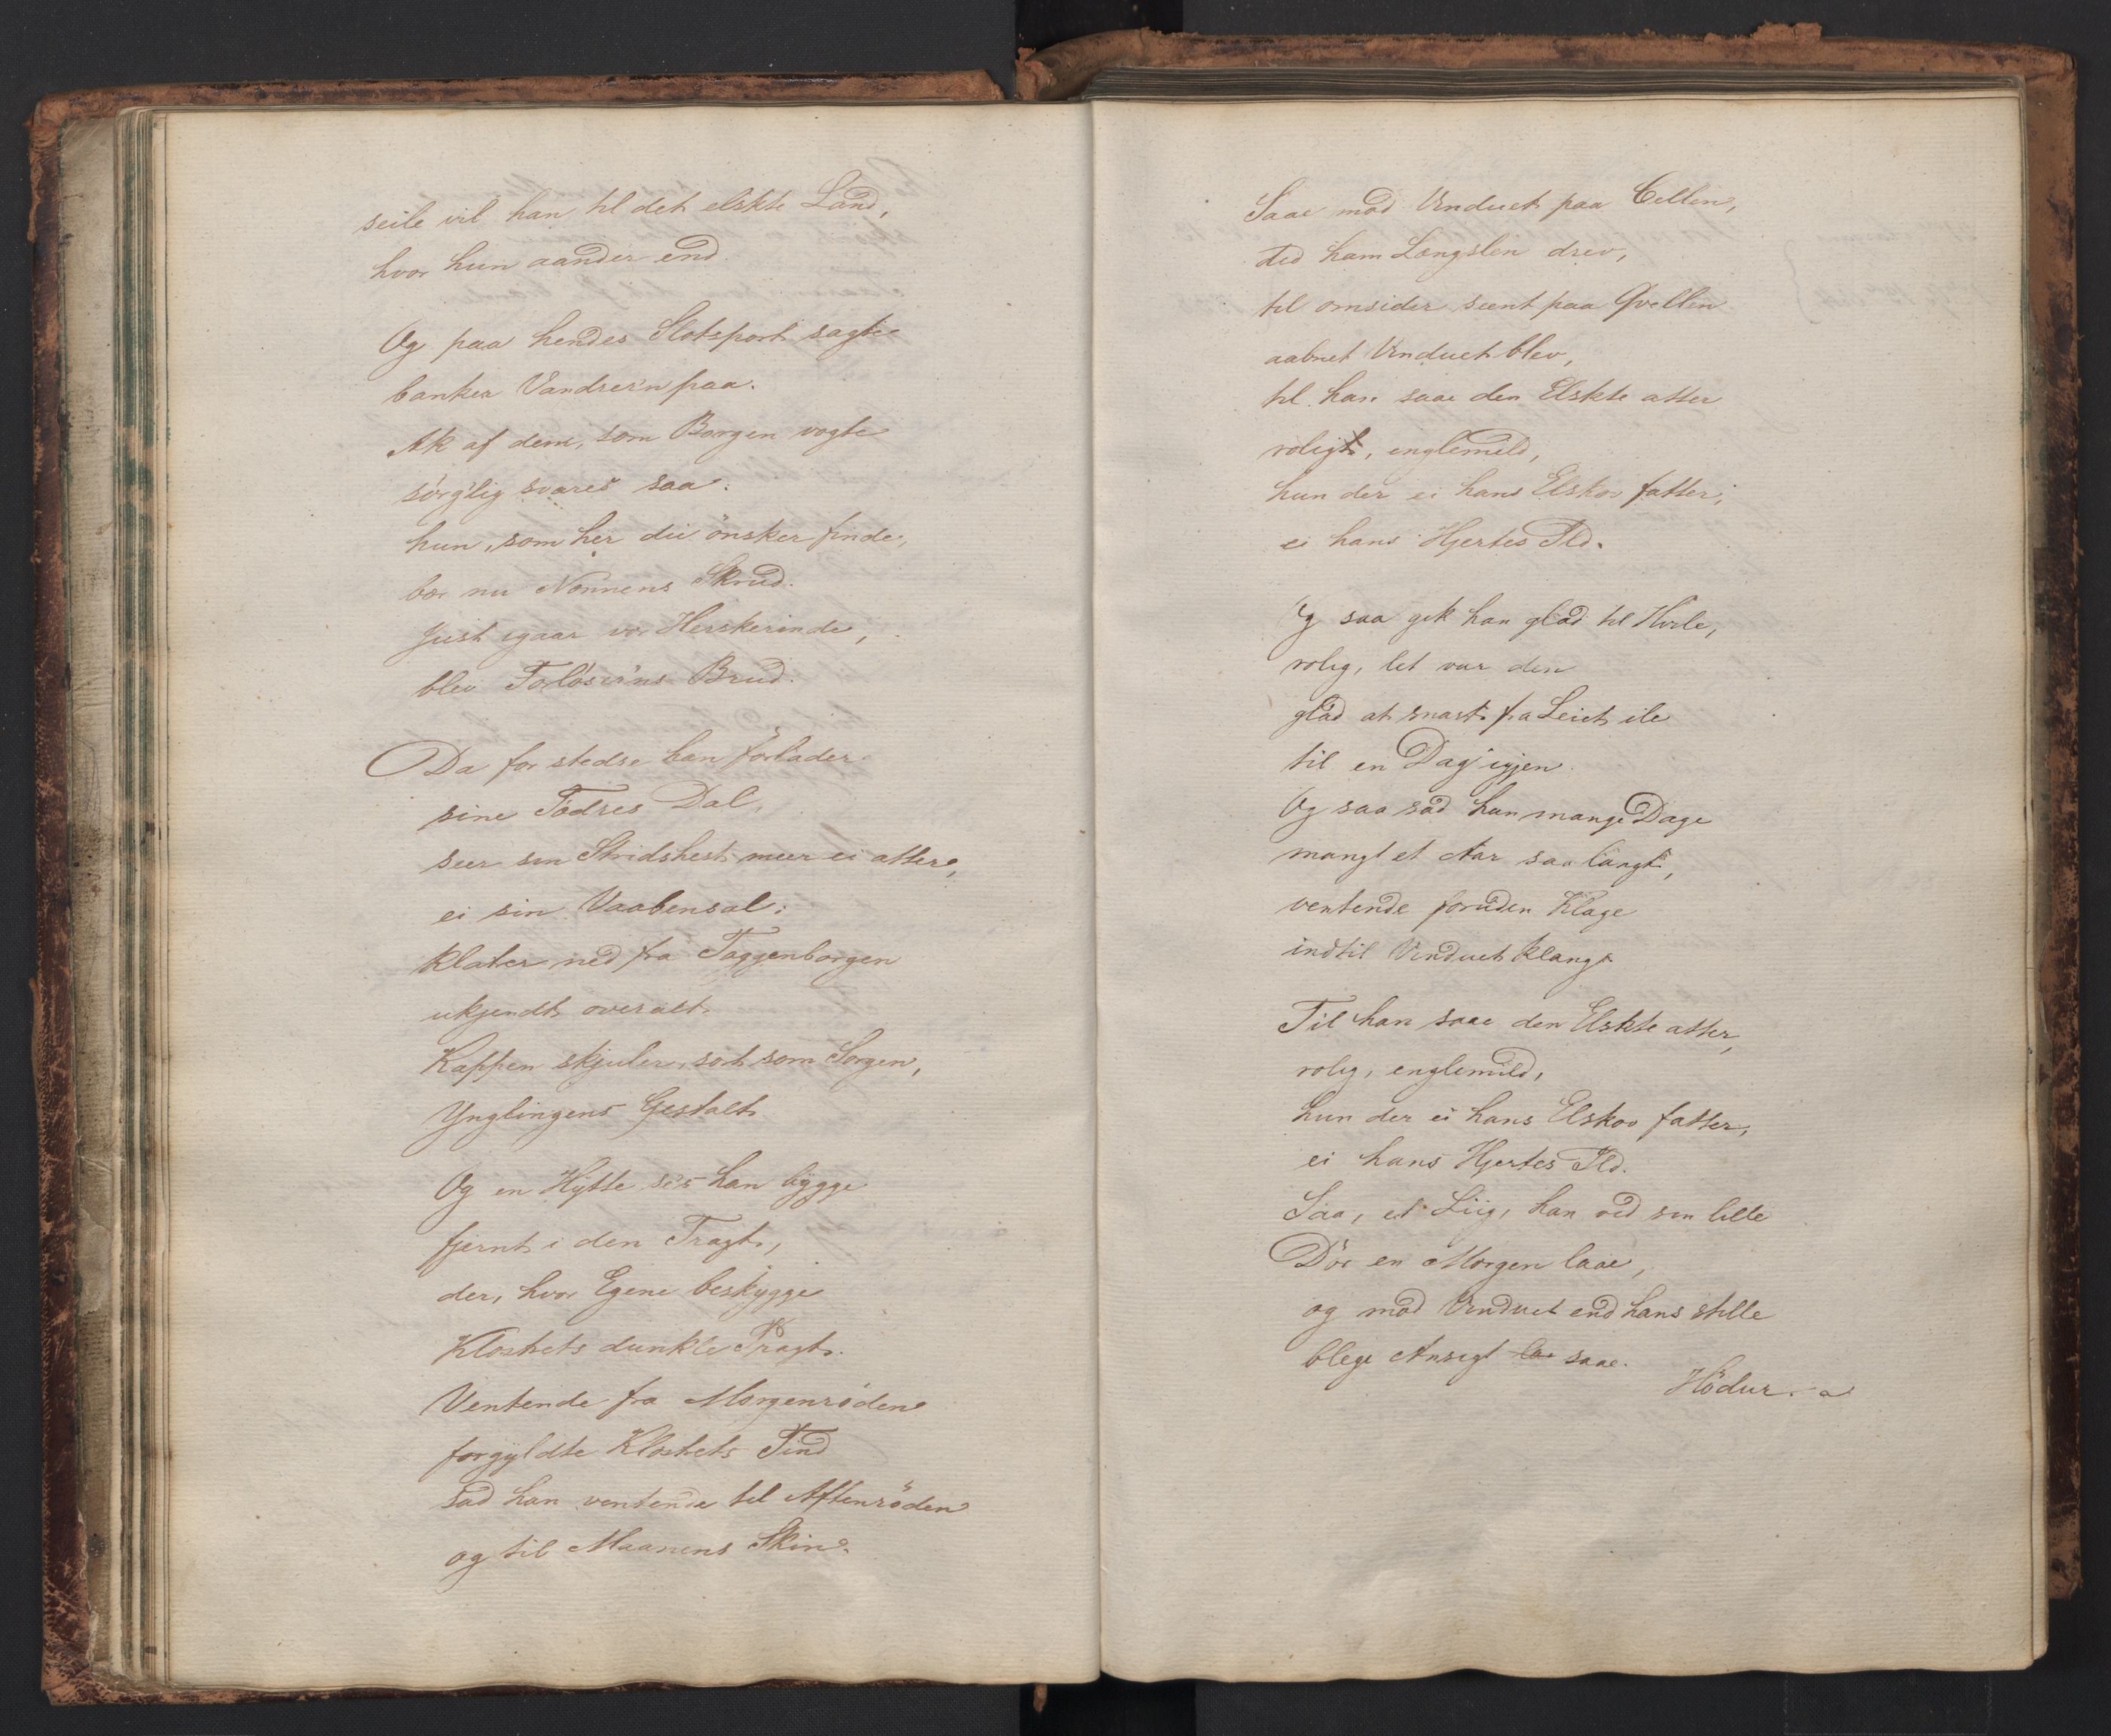 seile vil han til det elskte Land,
hvor hun aander end.
Og paa hendes Slotsport sagte
banker Vandrer'n paa.
Ak af dem, som Borgen vogte
sörg'lig svares saa:
hun, som her du önsker finde,
bær nu Nonnens Skrud.
Just igaar vor Herskerinde,
blev Forlöser'ns Brud.
Da for stedse han forlader
sine Fædres Dal,
seer sin Stridshest meer ei atter,
ei sin Vaabensal;
klater ned fra Toggenborgen
ukjendt overalt.
Kappen skjuler, sort som Sorgen,
Ynglingens Gestalt
Og en Hytte sees han bygge
fjernt i den Tragt,
der, hvor Egene beskygge
Klostrets dunkle Pragt.
Ventende fra Morgenröden
forgyldte Klostrets Tind
sad han ventende til Aftenröden
og til Maanens Skin.
Saae mod Vinduet paa Cellen,
did ham Længslen drev,
til omsider seent paa Qvellen
aabnet Vinduet blev,
til han saae den Elskte atter
rolig, englemild,
hun der ei hans Elskov fatter,
ei hans Hjertes Ild.
Og saa gik han glad til Hvile,
rolig, let var den
glad at snart fra Leiet ile
til en Dag igjen.
Og saa sad han mange Dage
mangt et Aar saa langt,
ventende foruden Klage
indtil Vinduet klang
Til han saae den Elskte atter,
rolig, englemild,
hun der ei hans Elskov fatter,
ei hans Hjertes Ild.
Saa, et Liig, han ved sin lille
Dör en Morgen laae,
og mod Vinduet end hans stille
blege Ansigt saae.
Hödur.